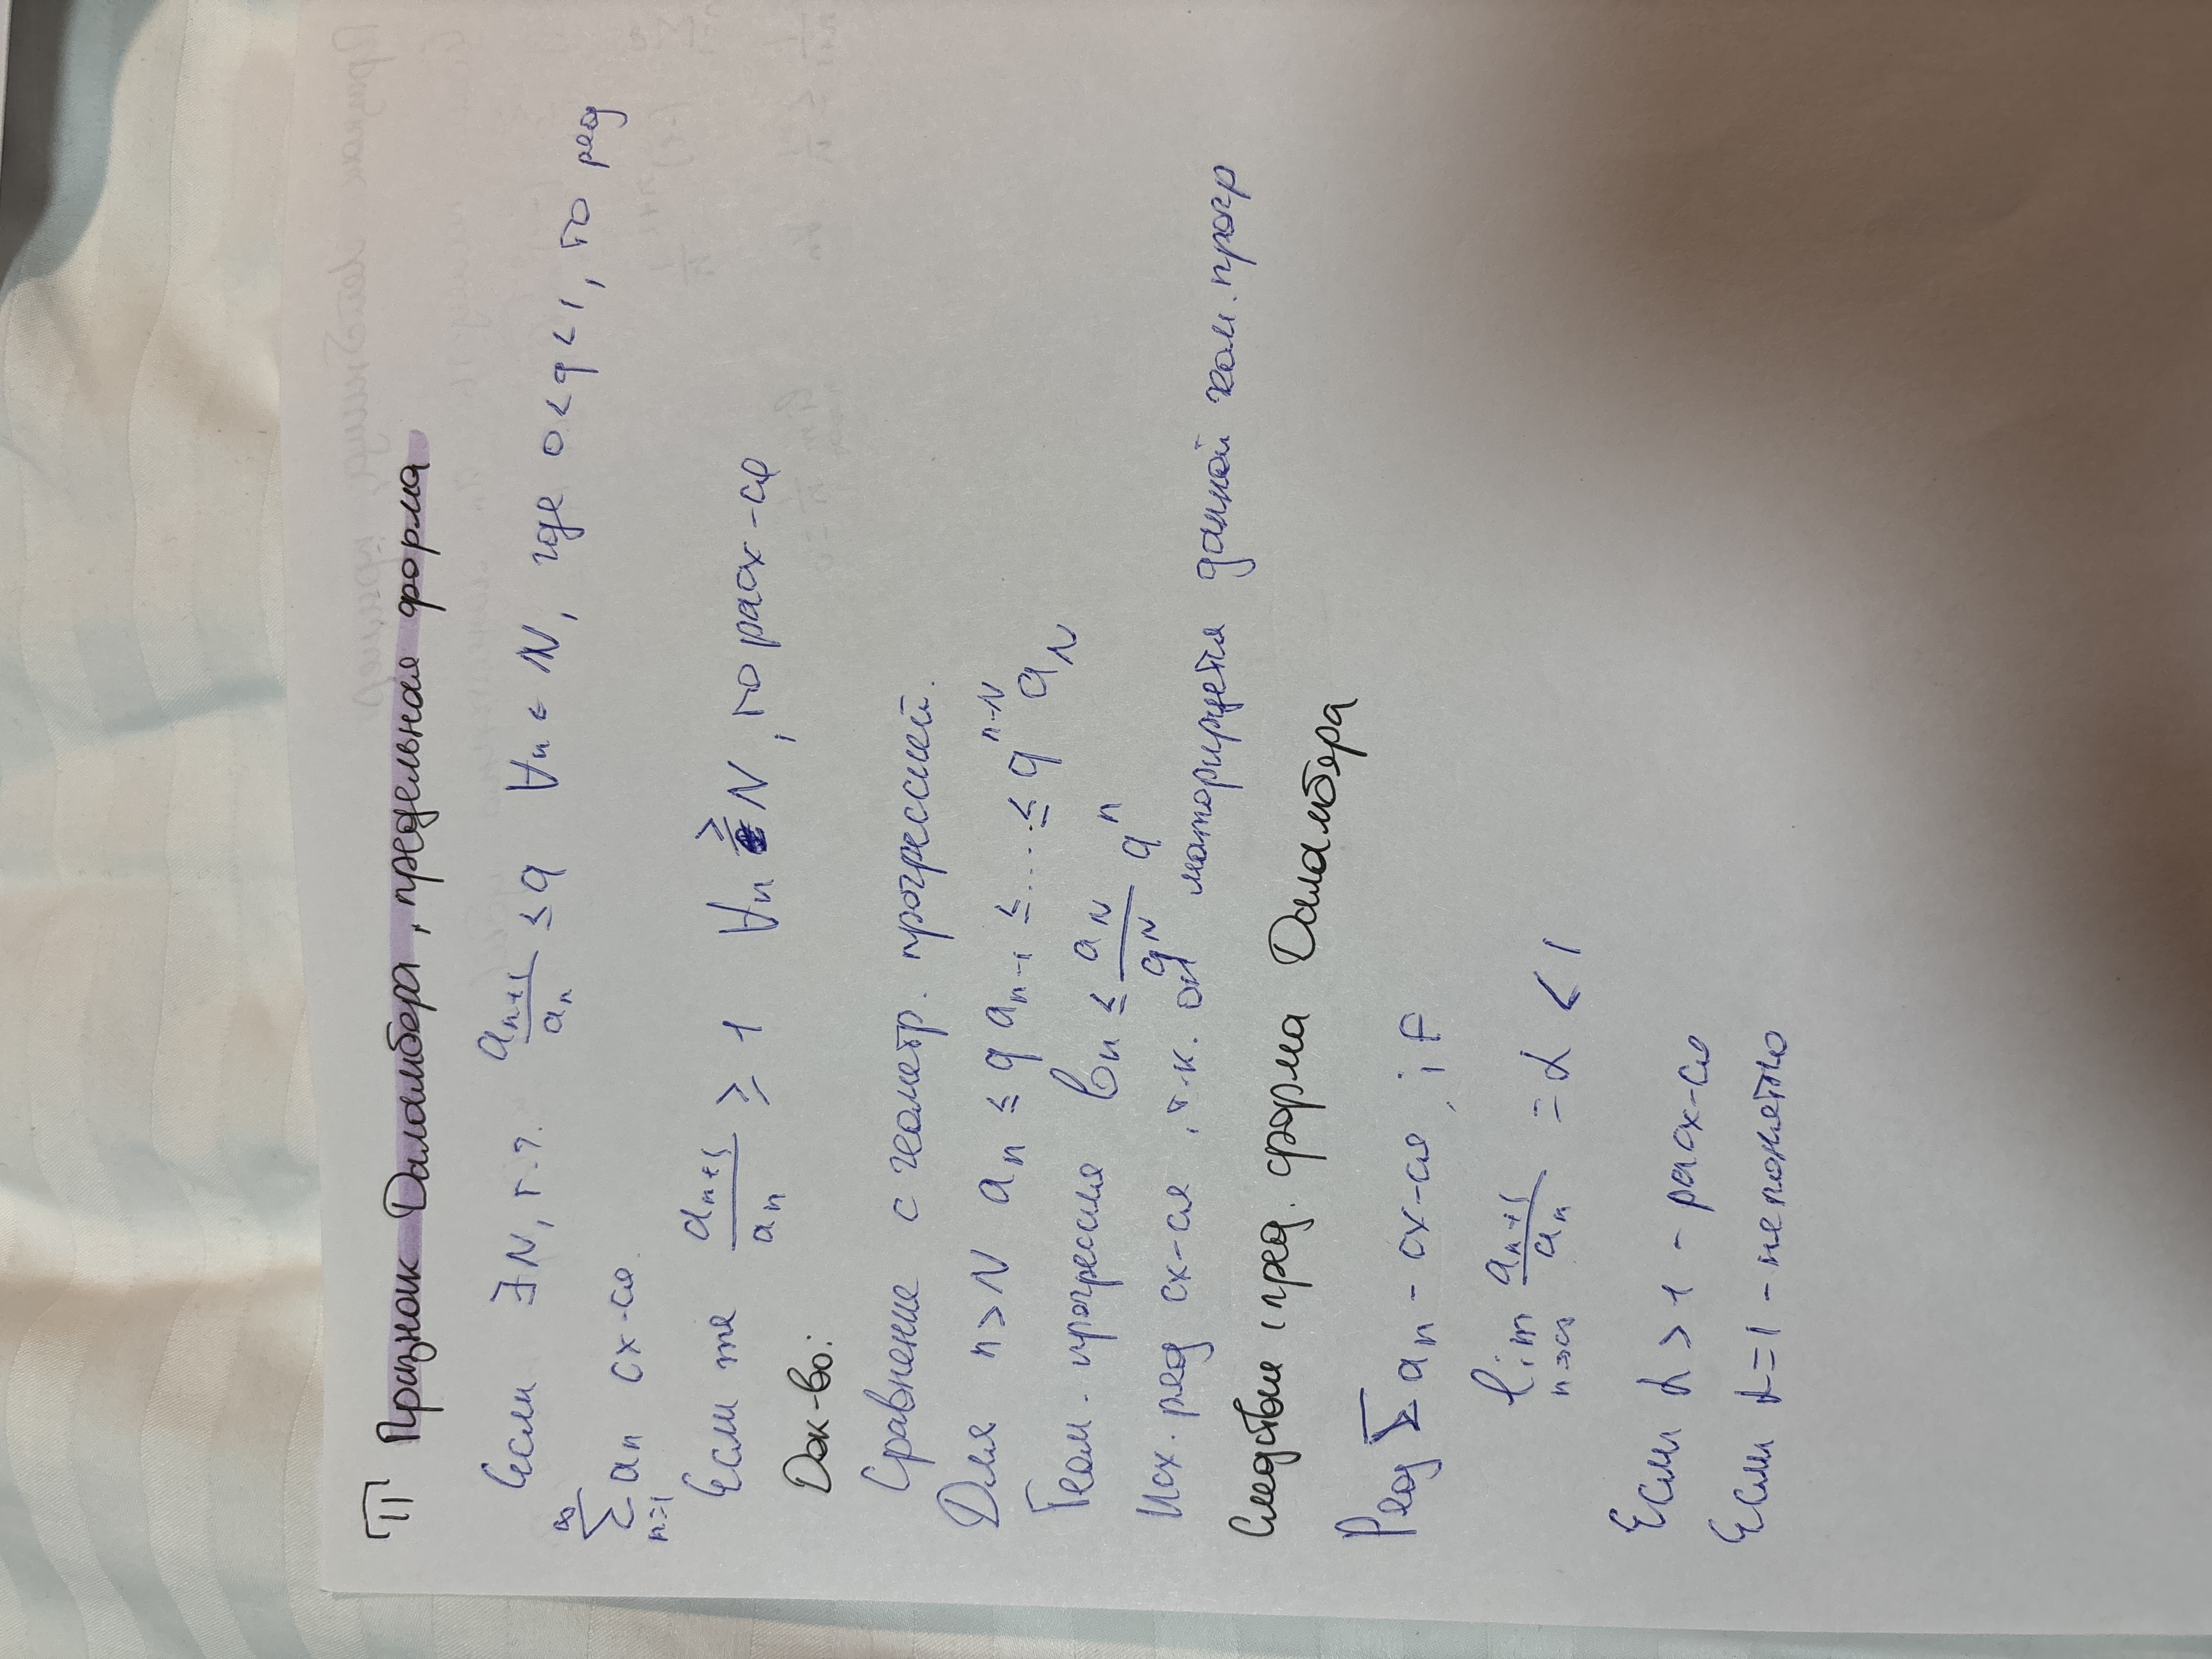 11 Признак Даламбера, предельная форма
Если ∃N, т.ч. aₙ₊₁/aₙ ≤ q ∀n ∈ N, где 0<q<1, то ряд
∑ₙ₌₁^∞ aₙ сх-ся.
Если же aₙ₊₁/aₙ ≥ 1 ∀n ≥ N, то расх-ся
Док-во:
Сравнение с геометр. прогрессией.
Для n>N aₙ ≤ q aₙ₋₁ ≤ .... ≤ q^(n-N) a_N
Геом. прогрессия bₙ ≤ a_N/q^N qⁿ
Исх. ряд сх-ся, т.к. он маторируется данной геом. прогр
Следствие, пред. форма Даламбера
Ряд ∑ aₙ - сх-ся, if
lim n→∞ aₙ₊₁/aₙ = α < 1
Если α > 1 - расх-ся
Если α = 1 - непонятно